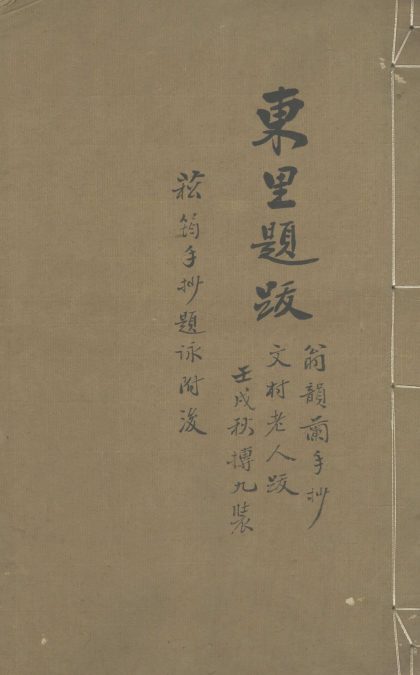 東里題跋
翁韻蘭手抄
文村老人跋
壬戌秋摶九裝
菘筠手抄題詠附後